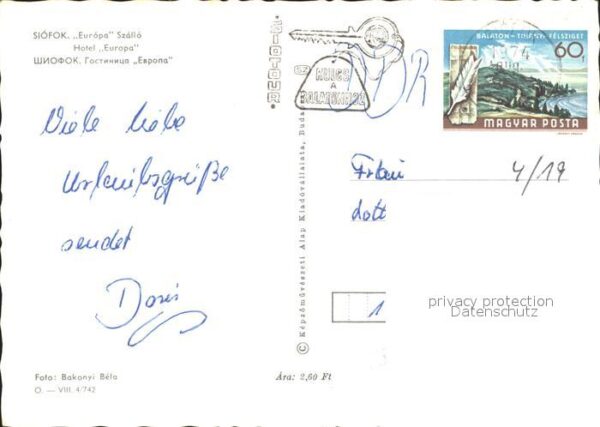 SIÓFOK. „Európa" Szálló
Hotel „Europa"
ШИОФОК. Гостиница „Европа"
SIÓFOK
KULCS
A
BALATONHOZ
DDR
BALATON - TIHANYI FÉLSZIGET
60f
MAGYAR POSTA
Viele liebe
Urlaubsgrüße
sendet
Doris
Frau
4/19
Lott
1
privacy protection
Datenschutz
© Képzőművészeti Alap Kiadóvállalata, Buda
Foto: Bakonyi Béla
O. — VIII. 4/742
Ára: 2,60 Ft